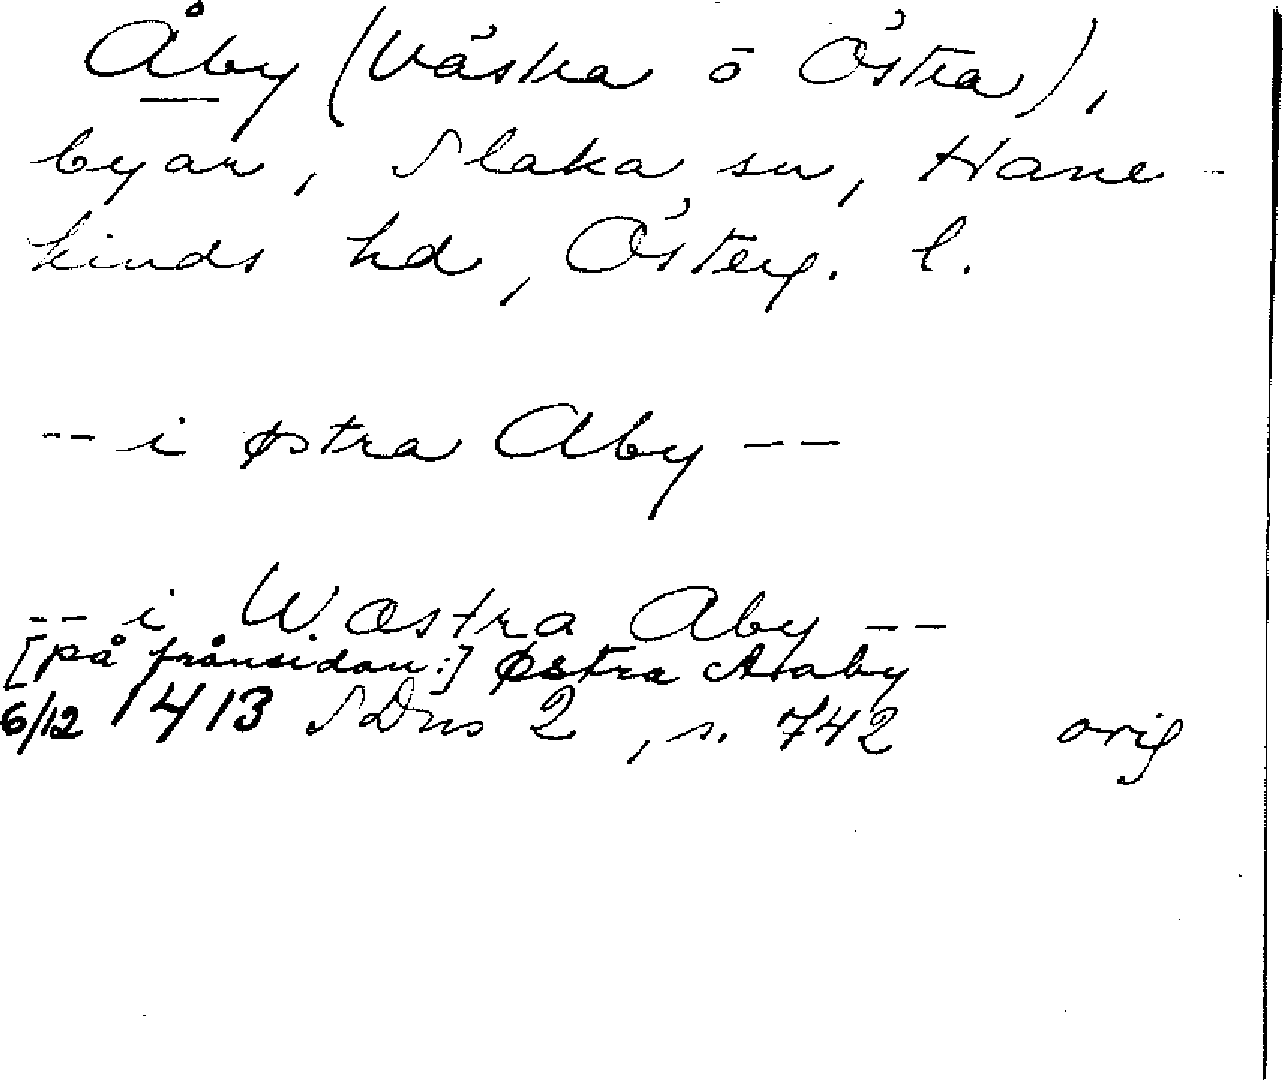 Åby (Västra o Östra),
byar, Slaka sn, Hane-
kinds hd, Österg. l.
-- i østra Aby --
-- i Wæstra Aby --
[på frånsidan:] østra Araby
6/12 1413 SDns 2, s. 742 orig